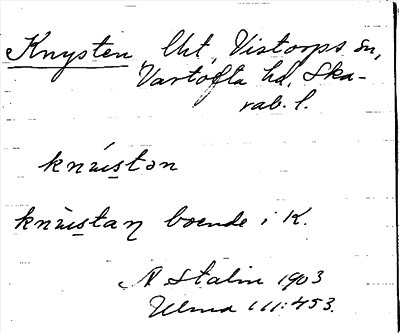 Knysten, lht, Vistorps sn,
Vartofta hd, Ska-
rab. l.
knu̇istən
knùistaŋ boende i K.
A Stalin 1903
Ulma 111:453.